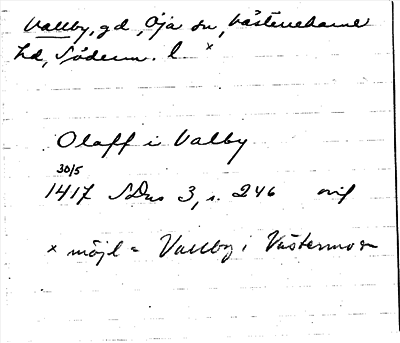 Vallby, gd, Öja sn, Västerrekarne
hd, Söderm. l x
Olaff i Valby
30/5
1417 SDns 3, s. 246 orig
x möjl = Vallby i Västermo sn